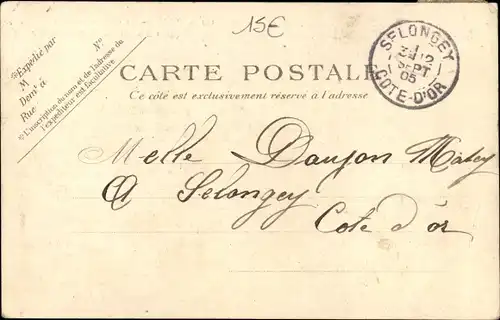 15€
※Expédié par
M
Demt à
Rue
N°
※L'inscription du nom et de l'adresse de
l'expéditeur est facultative
CARTE POSTALE
Ce côté est exclusivement réservé à l'adresse
SELONGEY
SEPT
05
COTE-D'OR
Melle Daujon
A Selongey
Cote d'or